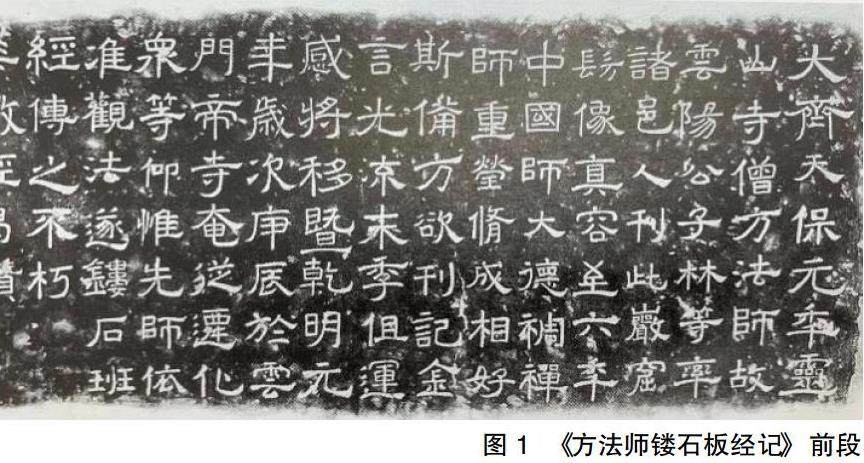 大齊天保元年靈
山寺僧方法師故
雲陽公子林等率
諸邑人刊此巖窟
髣像真容至六年
中國師大德稠禪
師重瑩脩成相好
斯備方欲刊記金
言光流末季但運
感將移暨乾明元
年歲次庚辰於雲
門帝寺奄從遷化
衆等仰惟先師依
准觀法遂鏤石班
經傳之不朽
图 1 《方法师镂石板经记》前段